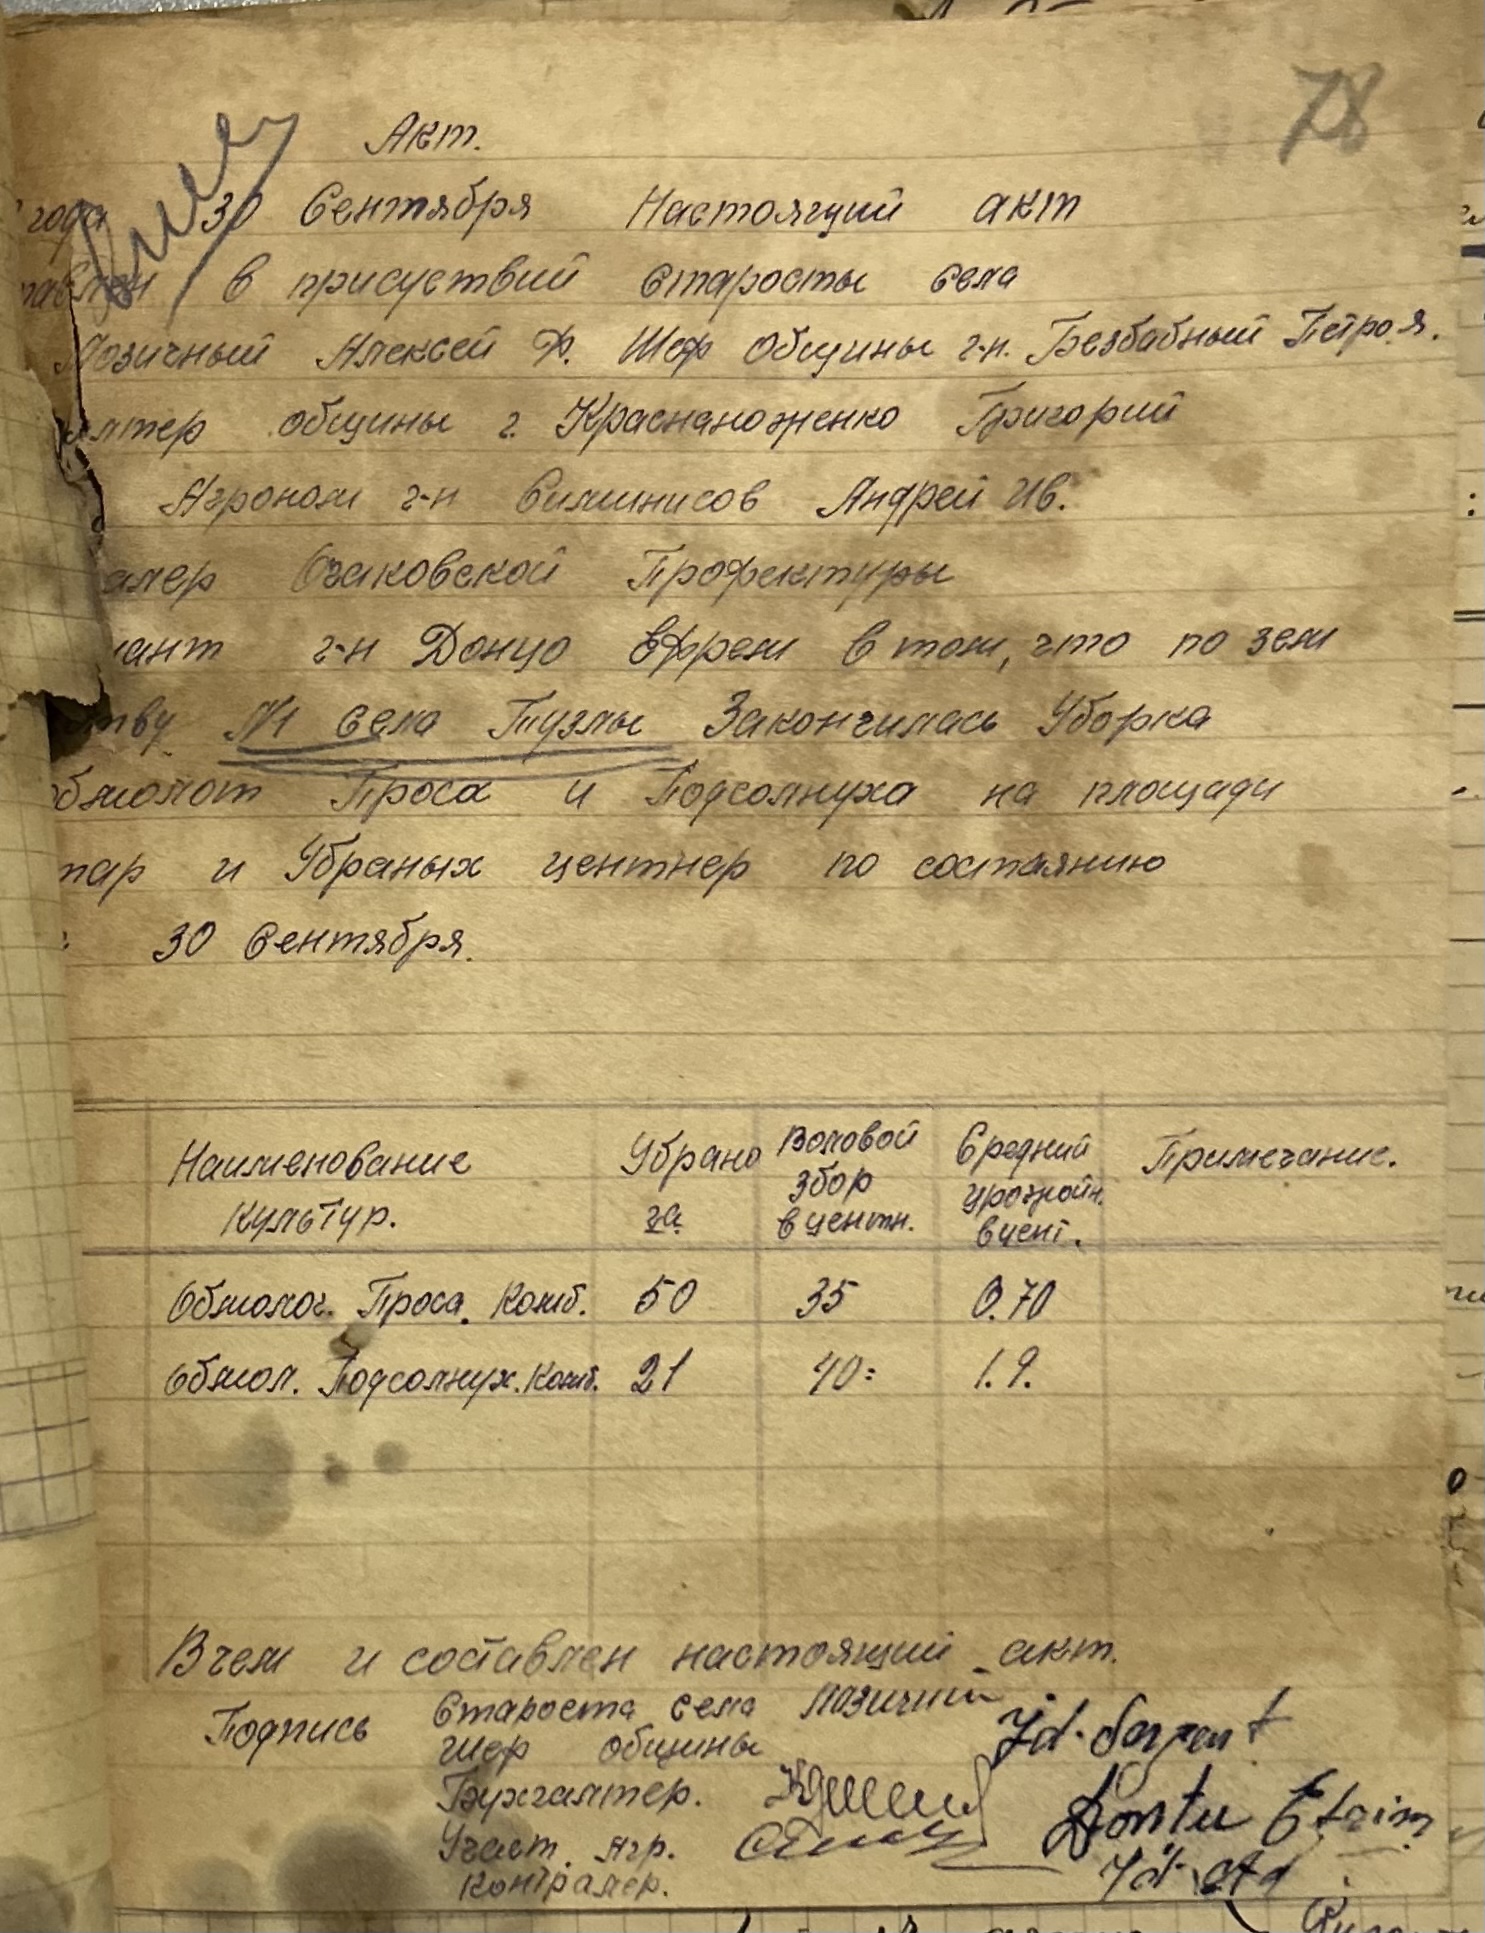 78
Акт.
года 30 Сентября Настоящий акт
в присуствий Старосты села
Лозичный Алексей Ф. Шеф Общины г-н. Безбабный Петро.Я.
лтер общины г. Краснаноженко Григорий
Агроном г-н Симинисов Андрей Ив.
алер Очаковской Профектуры
ант г-н Донцо Ефрем в том, что по зем
тву №1 села Тузлы Закончилась Уборка
обмолот Проса и Подсолнуха на площади
тар и Убраных центнер по состаянию
30 Сентября.
Наименование Культур. Убрано га Воловой збор в центн. Средний урожайн. в цент. Примечание.
Обмолог. Проса. Комб. 50 35 0.70
Обмол. Подсолнух. Комб. 21 40= 1.9.
В чем и составлен настоящий акт.
Подпись Староста села Лозичний
Шеф общины
Бухгалтер.
Участ. Агр.
Контралер.
Dontu Efrim